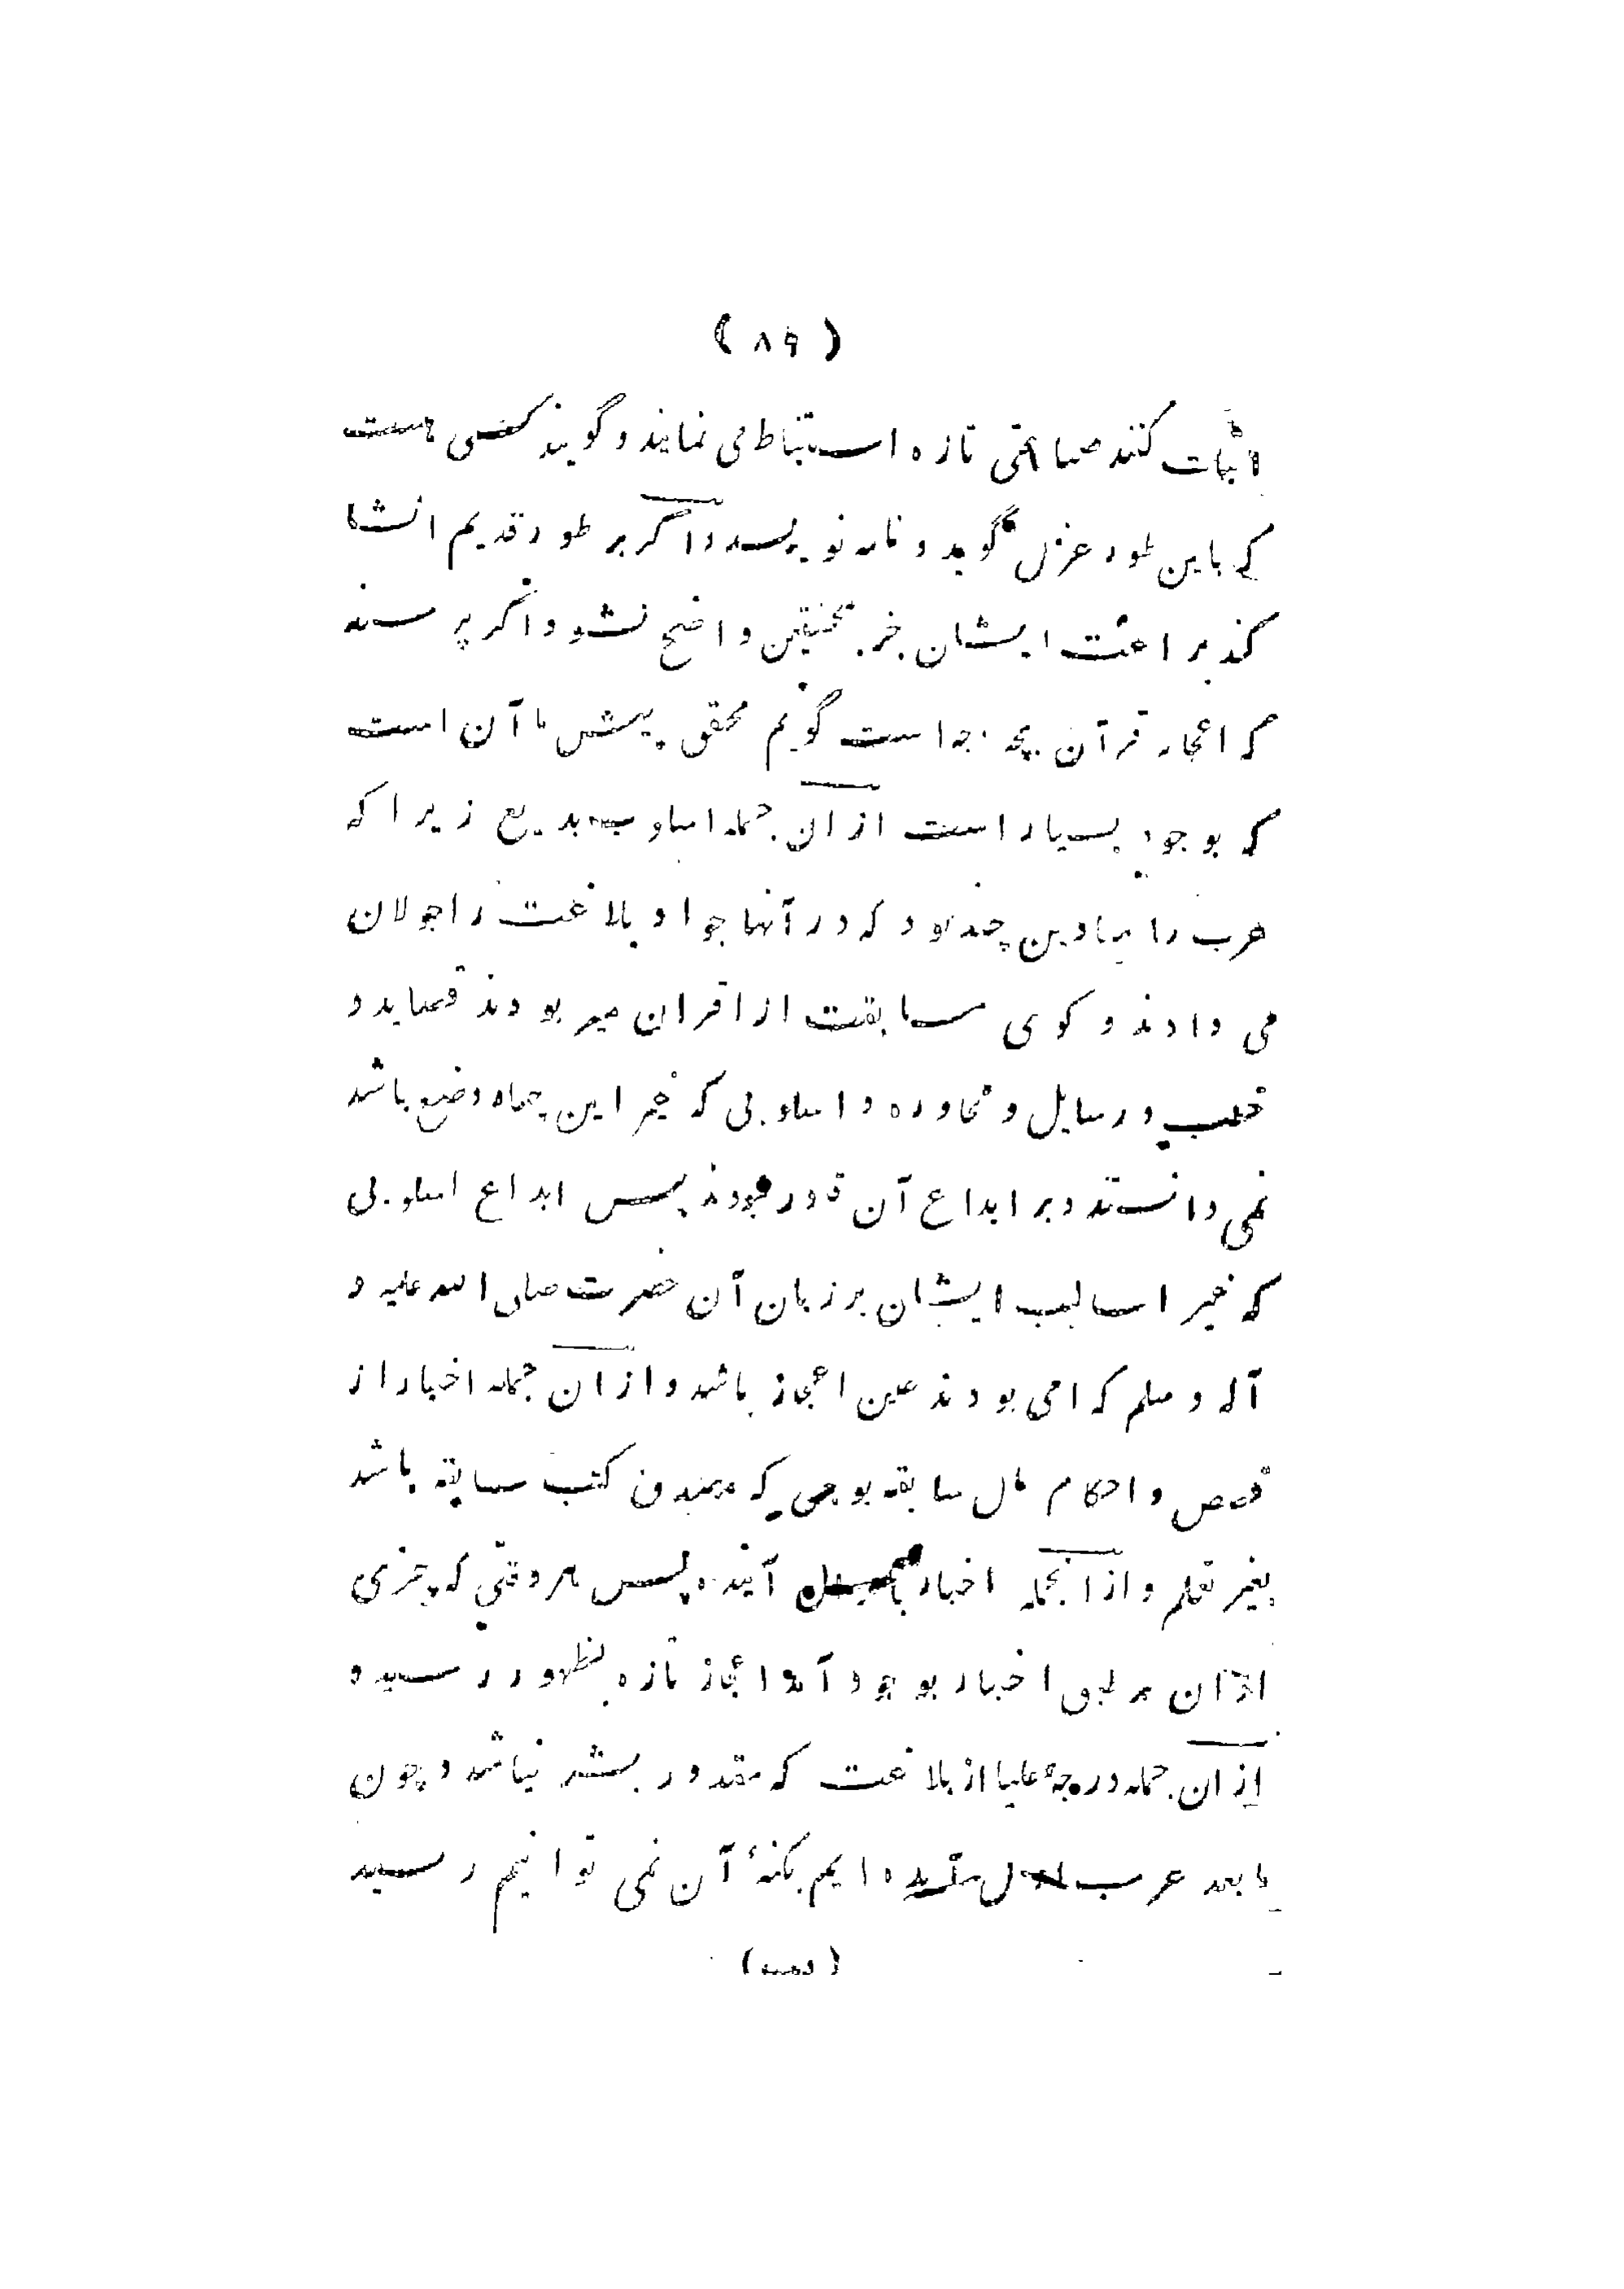 ( ۸۹ )
اثبات کنند صناعتی تازه استنباط می نمایند و گویند کسی هست
که باین طور غزل گوید و نامه نویسد و اگر بر طور قدیم انشا
کند براعت ایشان جز بمحققین واضح نشود و اگر پرسند
که اعجاز قرآن بچه وجه است گویم محقق پیش ما آن است
که بوجوه بسیار است ازان جمله اسلوب بدیع زیرا که
عرب را میادین چند بود که در آنها جواد بلاغت را جولان
می دادند و کوی مسابقت از اقران میر بودند قصاید و
خطب و رسایل و محاوره و اسلوبی که غیر این چهار وضع باشد
نمی دانستند و بر ابداع آن قادر نبودند پس ابداع اسلوبی
که غیر اسالیب ایشان بر زبان آن حضرت صلی الله علیه و
آله و سلم که امی بودند عین اعجاز باشد و ازان جمله اخبار از
قصص و احکام ملل سابقه بوجهی که مصدق کتب سابقه باشد
بغیر تعلم و از انجمله اخبار آینده پس هر وقتی که چیزی
ازان بر طبق اخبار بوجود آمد اعجاز تازه بظهور رسید و
ازان جمله درجهٔ علیا از بلاغت که مقدور بشر نباشد و چون
ما بعد عرب اول آمده ایم بکنهٔ آن نمی توانیم رسید